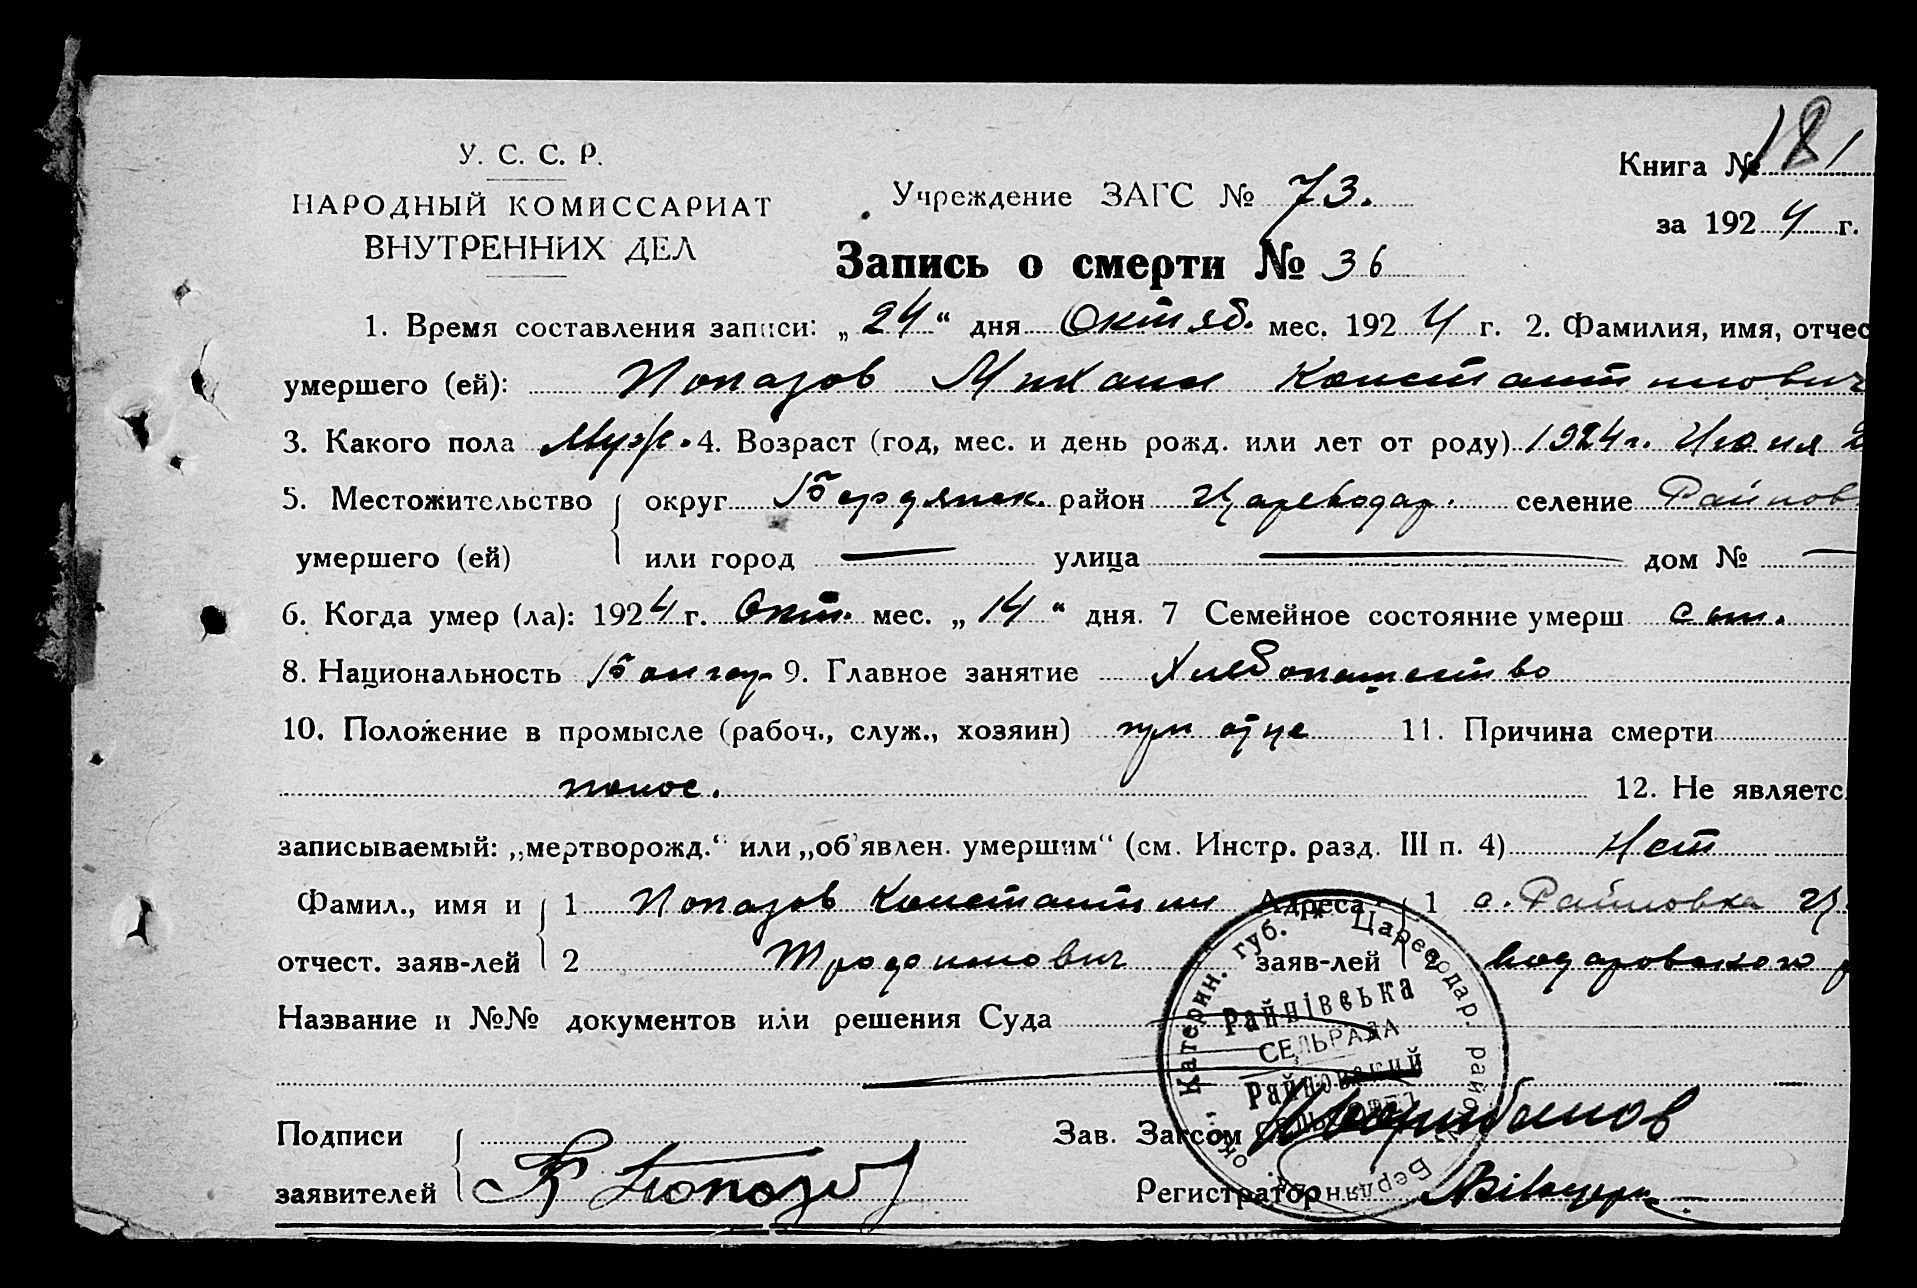 У. С. С. Р.
НАРОДНЫЙ КОМИССАРИАТ
ВНУТРЕННИХ ДЕЛ
Учреждение ЗАГС № 73.
Книга № 181
за 1924 г.
Запись о смерти № 36
1. Время составления записи: „24“ дня Октяб. мес. 1924 г. 2. Фамилия, имя, отчес
умершего (ей): Попазов Михаил Константинович
3. Какого пола Муж. 4. Возраст (год, мес. и день рожд. или лет от роду) 1924 г. Июля 2
5. Местожительство округ Бердянск. район Цареводар. селение Райнов
умершего (ей) или город — улица — дом № —
6. Когда умер (ла): 1924 г. Окт. мес. „14“ дня. 7 Семейное состояние умерш
8. Национальность Болгар 9. Главное занятие Хлебопашество
10. Положение в промысле (рабоч., служ., хозяин) при отце 11. Причина смерти
понос. 12. Не являетс
записываемый: „мертворожд.“ или „об'явлен. умершим“ (см. Инстр. разд. III п. 4) Нет
Фамил., имя и 1 Попазов Константин Адреса 1 с. Райновка Ц.
отчест. заяв-лей 2 заяв-лей 2 водаровского р
Название и №№ документов или решения Суда
Подписи
заявителей Попазов
Зав. Загсом
Регистратор
Катерин. губ. Цареводар. район Бердян. ок.
Райнівська
СЕЛЬРАДА
Райновский